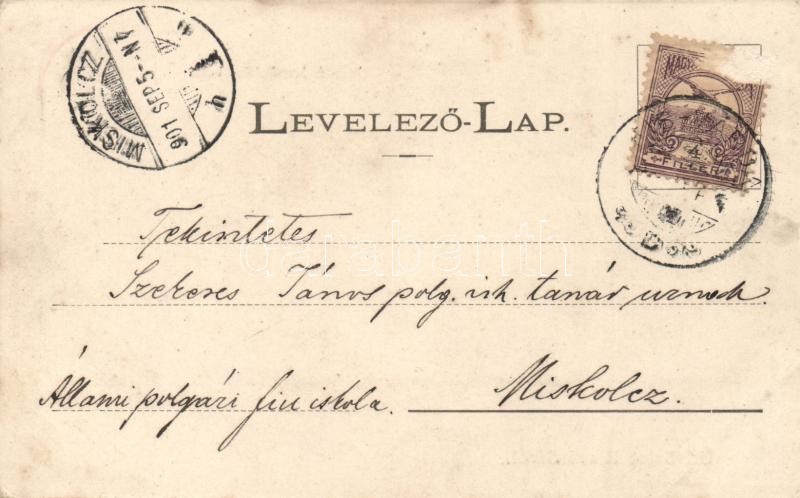 MISKOLCZ
901 SEP. 5-N.4
LEVELEZŐ-LAP.
MAGY
FILLÉR
Tekintetes
Szekeres János polg. isk. tanár urnak.
Állami polgári fiu iskola.
Miskolcz.
darabanth